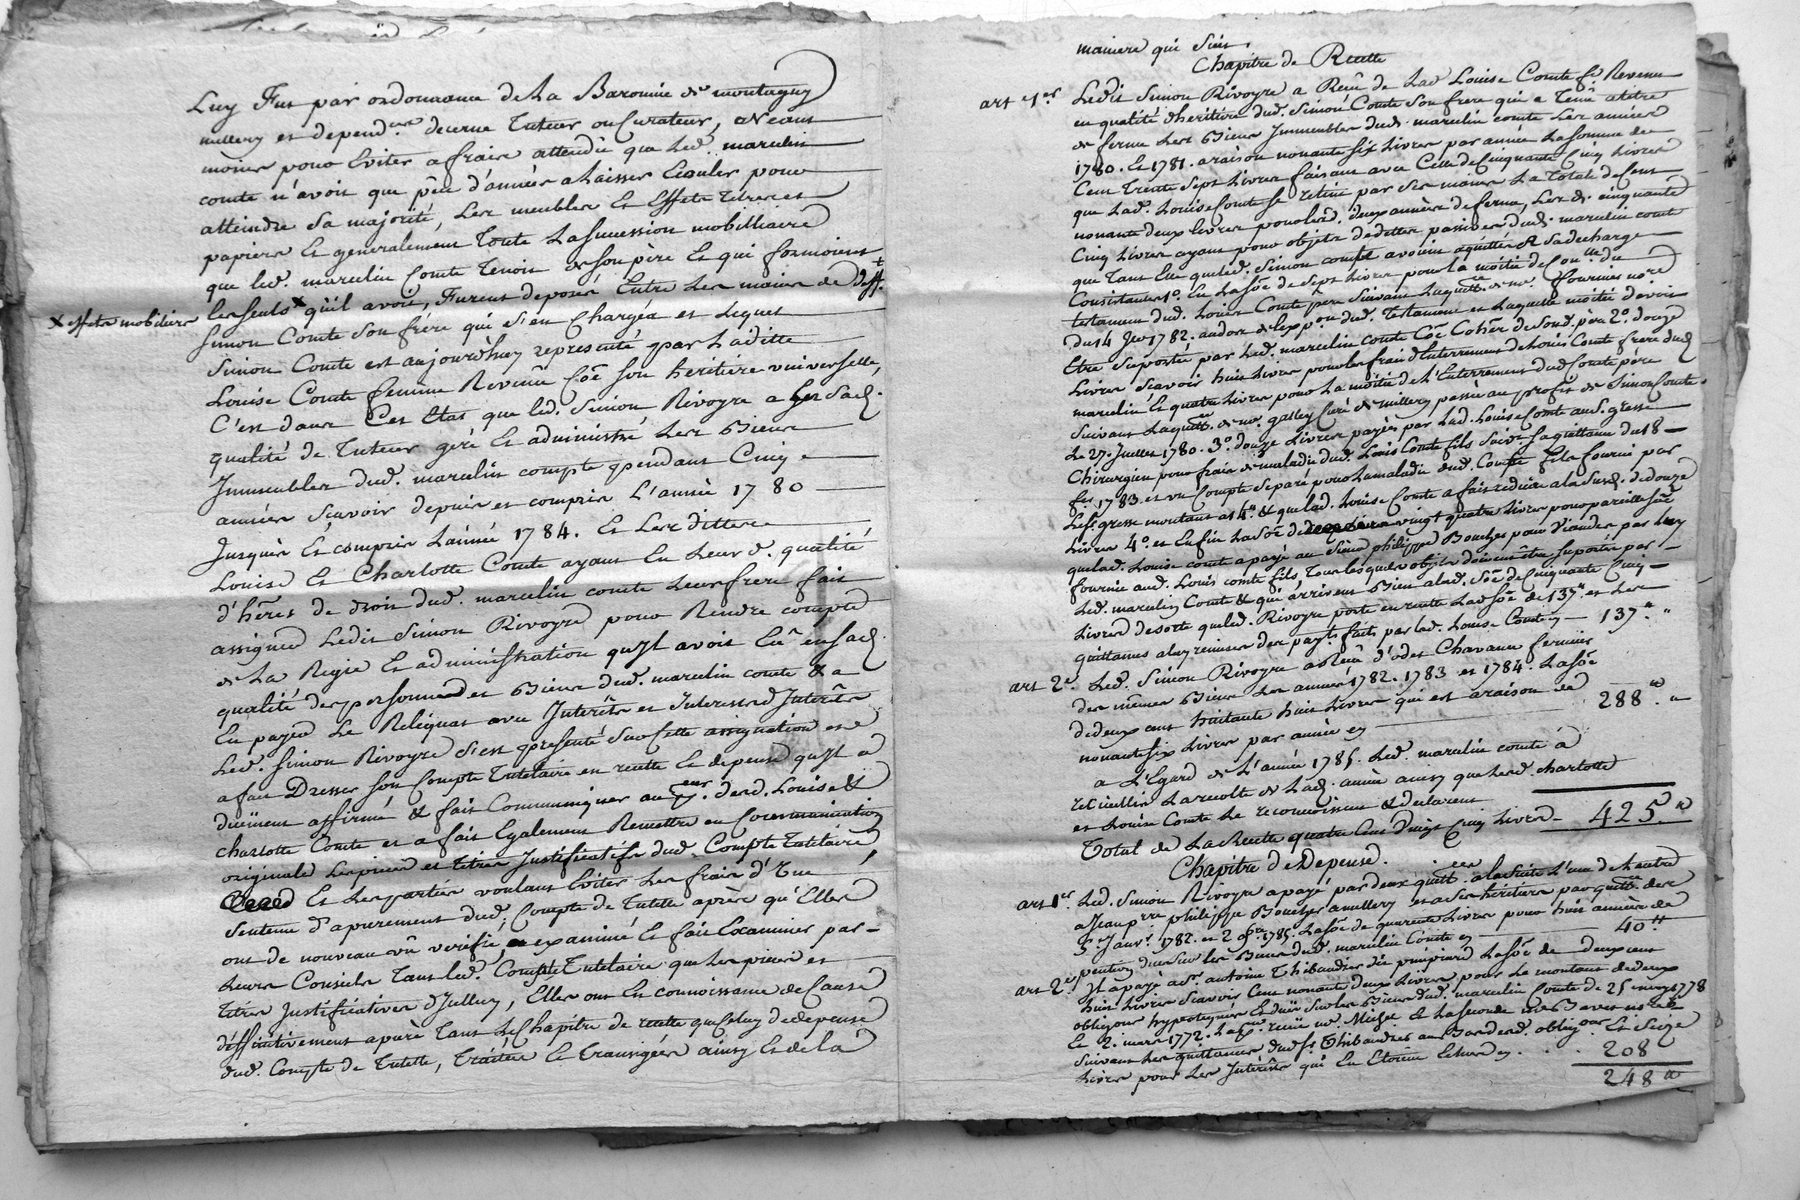 Luy Fut par ordonnance de La Baronnie de montagny
millery et depend.ces decerné Tuteur ou Curateur, neant
moins pour Eviter a frais attendu que Led. marcelin
comte n'avoit que peu d'années a Laisser Ecouler pour
atteindre Sa majorité, Les meubles Et Effets titres et
papiers Et generalement Toute La Succession mobilliaire
que led. marcelin Comte Tenoit de son père Et qui formoient
les seuls x qu'il avoit, Furent deposés Entre Les mains de
x effets mobiliers
Simon Comte Son frére qui s'en Chargéa et Lequel
Simon Comte est aujourd'huy representé par Laditte
Louise Comte femme Revenu Côe Son heritiere universelle,
C'est dans Cet Etat que led. Simon Rivoyre a Sad.
qualité de Tuteur geré Et administré Les Biens
Immeubles dud. marcelin compte pendant Cinq
années sçavoir depuis et compris L'année 1780
Jusques Et compris L'année 1784. Et Les dittes
Louise Et Charlotte Comte ayant En Leurd. qualité
d'hêres de droit dud. marcelin comte Leur frere fait
assigner Ledit Simon Rivoyre pour Rendre compte
de La Regie Et administration qu'Il avoit Eû en sad.
qualité des personne et Biens dud. marcelin comte & a
En payer Le Reliquat avec Interêts et Interest d'Interêts
Led. Simon Rivoyre s'est presenté Sur Cette assignation et
a fait Dresser son Compte Tutelaire en recette Et depense qu'Il a
duëment affirmé & fait Communiquer au desd. Louise &
charlotte Comte et a fait Egalement Remettre en Communication
originale Les pieces et titres Justificatifs dud. Compte Tutelaire
Et Les parties voulant Eviter Les frais d'Une
Sentence d'apurement dud. Compte de Tutelle après qu'Elles
ont de nouveau vû verifié, examiné Et fait Examiner par
Leurs Conseils Tant led. Compte Tutelaire que Les pieces et
titres Justificatives d'Icelluy, Elles ont En connoissance de Cause
déffinitivement apuré Tant Le Chapitre de recette que Celuy de depense
dud. Compte de Tutelle, Traitée Et transigées ainsy Et de La
maniere qui Suit.
Chapitre de Recette
art 1er. Ledit Simon Rivoyre a Reçu de Lad Louise Comte fe. Revenu
en qualité d'heritiere dud. Simon Comte Son frere qui a Tenû a titre
de ferme Les Biens Immeubles dud. marcelin comte Les années
1780. Et 1781. a raison nonante Six Livres par année La Somme de
Cent Trente Sept Livres faisant avec Celle de Cinquante Cinq Livres
que Lad. Louise Comte Se retient par Ses mains La Totale de Cent
nonante deux Livres pour Lesd. deux années de ferme, Les d. cinquante
Cinq Livres ayant pour objets de dettes passives dud. marcelin comte
que Tant Elle que led. Simon comte avoient aquittés a Sa decharge
Consistantes 1º. En La Sôe de Sept Livres pour La moitié de du
testament dud. Louis Comte pere Suivant La quitt.ce de mr. fournier no.re
du 14 1782. au dos de l'exp.on dud. Testament Et Laquelle moitié devoit
Etre Suportée par Led. marcelin comte Côe Cohêr de Sond. père 2º. douze
Livres Sçavoir huit Livres pour les frais d'Enterrement de Louis Comte frere dud.
marcelin Et quatre Livres pour La moitié de L'Enterrement dud Comte père
Suivant La quitt.ce de mr. gastey Curé de millery passée au profit de Simon Comte
Le 27. Juillet 1780. 3º. douze Livres payées par Lad. Louise Comte aud. S. grosse
Chirurgien pour frais de maladie dud. Louis Comte fils Suivt. Sa quittance du 18
1783. et un Compte Separé pour La maladie dud. Comte fils fourni par
Led. S. grosse montant a 14.# & que Lad. Louise Comte a fait reduire a La Sud. de douze
Livres 4º. et Enfin La Sôe de vingt quatre Livres pour pareille sôe
que lad. Louise Comte a payé au Sieur philippe Boucher pour Viandes par Luy
fournie aud. Louis comte fils, Tous Lesquels objets doivent être Suportés par
Led. marcelin Comte & qui arrivent Bien a lad. Sôe de Cinquante Cinq
Livres de sorte que led. Rivoyre porte en recette La Sôe de 137.# et Les
quittances a luy remises des payts. faits par lad. Louise Comte cy — 137.# "
art 2e. Led. Simon Rivoyre a Reçu d'odet Chavanne fermier
des mêmes Biens Les années 1782. 1783 et 1784. La Sôe
de deux cent huitante huit Livres qui est a raison de
nonante six Livres par année cy 288.# "
a L'Egard de L'année 1785. Led. marcelin comte a
recueilli La recolte de Lad. année ainsy que Lesd. charlotte
et Louise Comte Le reconnoissent & declarent
Total de La Recette quatre Cent Vingt Cinq Livres — 425.#
Chapitre de Depense.
art 1er. Led. Simon Rivoyre a payé par deux quitt.ces a la Suite L'une de L'autre
a Jean p.re philippe Boucher a millery et a Ses heritiers par quitt.ce des
5 Janv. 1782. et 2 1785. La Sôe de quarente Livres pour huit années de
pention dües Sur Les Biens dud. marcelin Comte cy — 40.#
art 2e. Il a payé a Sr. antoine Thibaudier La Sôe de deux cent
huit Livres Sçavoir Cent nonante deux Livres pour Le montant de deux
oblig.ons hypotequées Et dües Sur Les Biens dud. marcelin Comte de 25 1778
Et 2. mars 1772. La 1.ere reçüe mr. Michel Et La Seconde no.re
Suivant Les quittances dud. Sr. Thibaudier au Bas desd. oblig.ons Et Seize
Livres pour Les Interêts qui En Etoient Echus cy. 208
248 #